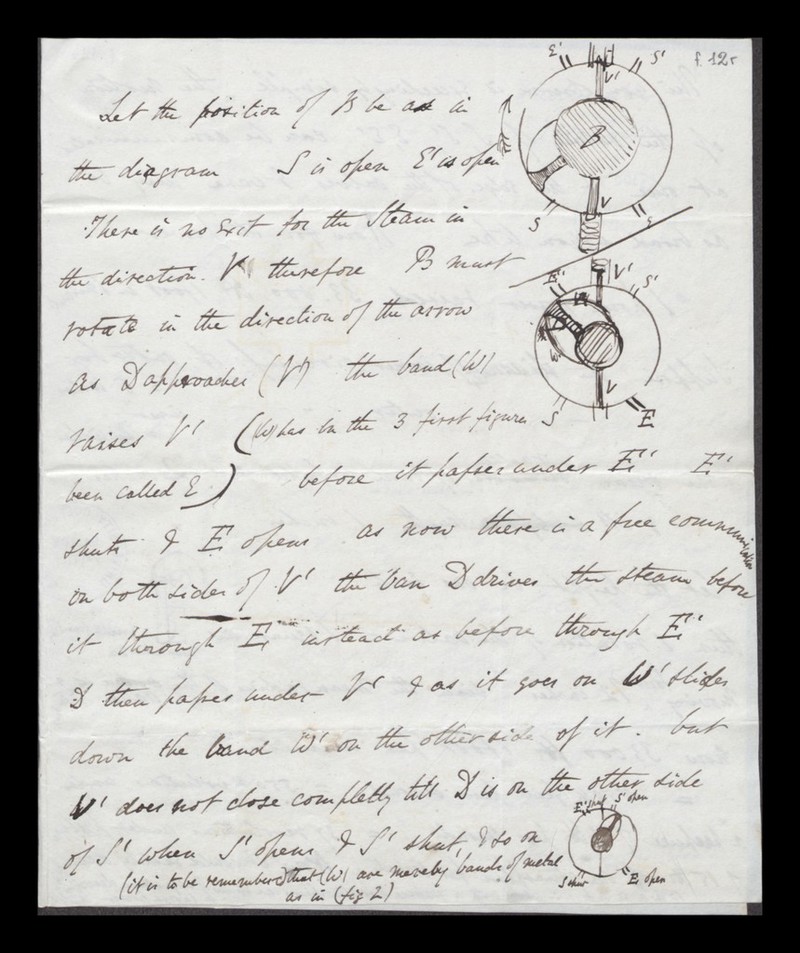 f. 12r
Let the position of B be as in
the diagram S is open E' is open
There is no Exit for the Steam in
the direction V therefore B must
rotate in the direction of the arrow
as D approaches (V') the band (W)
raises V' ((W) has in the 3 first figures
been called E) before it passes under E' E'
shuts & E opens as now there is a free communication
on both sides of V' the van D drives the steam before
it through E instead as before through E'
D then passes under V' & as it goes on W' slides
down the band W' on the other side of it. but
V' does not close completly till D is on the other side
of S' when S' opens & S' shut, & so on
(it is to be remembered that (W) are merely bands of metal
as in (fig 2)
E' S'
V'
B
V
S
E' V' S'
D
W
V
S E
E' shut S' open
S shut E open